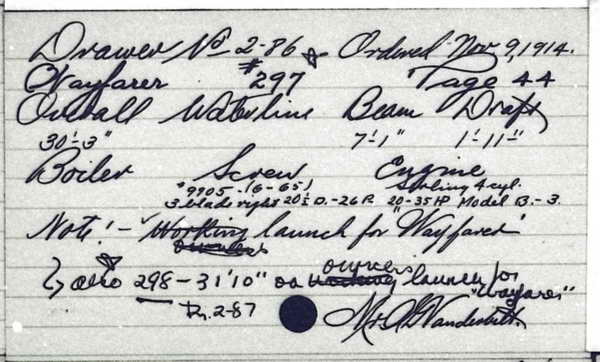 Drawer No 2-86 ☆ Ordered Nov. 9, 1914.
Wayfarer #297 Page 44
Overall Waterline Beam Draft
30'-3" 7'-1" 1'-11"
Boiler Screw Engine
#9905-(6-65) Sterling 4 cyl.
3 blade right 20½ D.-26 P. 20-35 HP Model B.-3.
Note! - "Working launch for "Wayfarer"
owners
owners
↳ also 298 - 31'10" oa working launch for
Dr. 2-87 "Wayfarer"
Mr. A.G. Vanderbilt